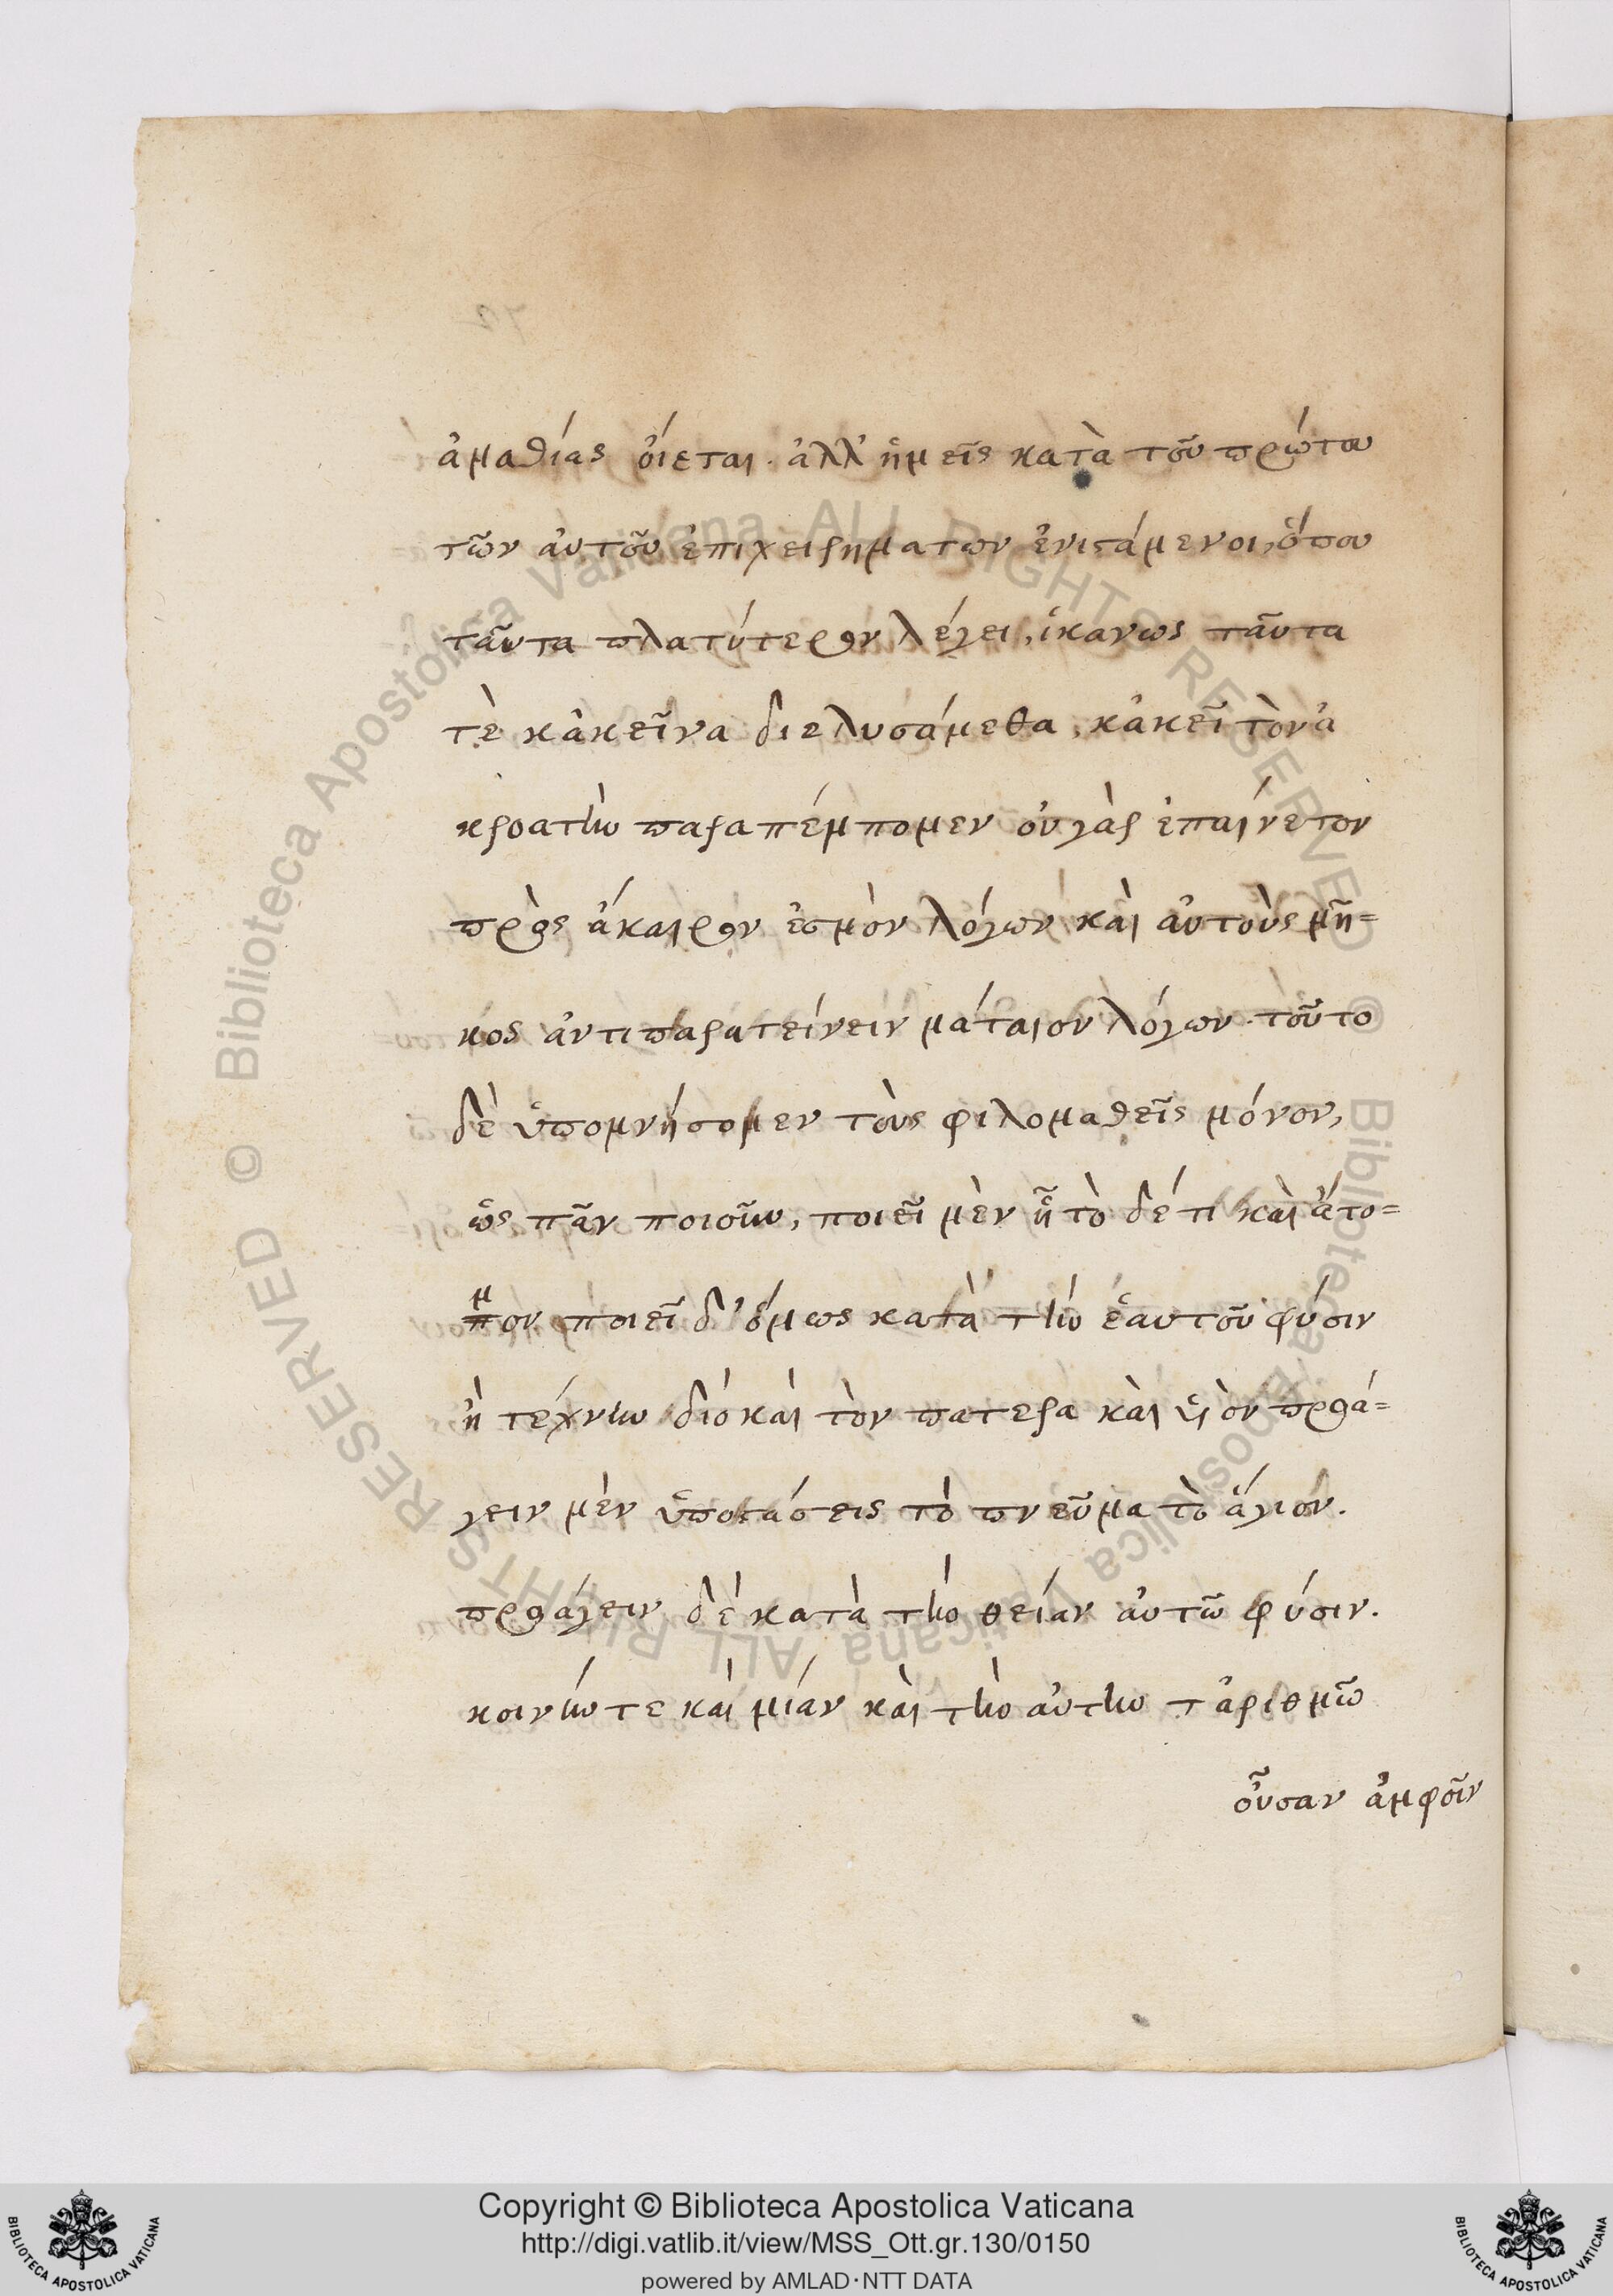 ἀμαθίας οἴεται. ἀλλ' ἡμεῖς κατὰ τοῦ πρώτου
τῶν αὐτοῦ ἐπιχειρηματων ἐνιστάμενοι, ὅπου
ταῦτα πλατύτερον λέγει, ἱκανως ταῦτα
τὲ κἀκεῖνα διελυσάμεθα, κἀκεῖ τὸν ἀ
κροατὴν παραπέμπομεν οὐ γὰρ ἐπαίνετον
πρὸς ἄκαιρον ἑσμὸν λόγων καὶ αὐτοὺς μῆ=
κος ἀντιπαρατείνειν μάταιον λόγων. τοῦτο
δὲ ὑπομνήσομεν τοὺς φιλομαθεῖς μόνον,
ὡς πᾶν ποιοῦν, ποιεῖ μὲν ἢ τὸ δέ τι καὶ ἄτο=
μον ποιεῖ δ' ὅμως κατὰ τὴν ἑαυτοῦ φύσιν
ἢ τέχνην διὸ καὶ τὸν πατερα καὶ υἱὸν προά=
γειν μὲν ὑποστάσεις τὸ πνεῦμα τὸ ἅγιον.
προάγειν δὲ κατὰ τὴν θείαν αὐτῶ φύσιν.
κοινήν τε καὶ μίαν καὶ τὴν αὐτὴν τἀριθμῶ
οὖσαν ἀμφοῖν
Copyright © Biblioteca Apostolica Vaticana
http://digi.vatlib.it/view/MSS_Ott.gr.130/0150
powered by AMLAD·NTT DATA
BIBLIOTECA APOSTOLICA VATICANA
BIBLIOTECA APOSTOLICA VATICANA
© Biblioteca Apostolica Vaticana ALL RIGHTS RESERVED © Biblioteca Apostolica Vaticana ALL RIGHTS RESERVED